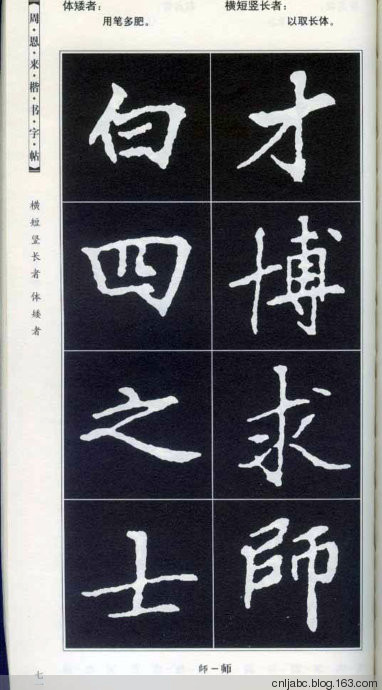 体矮者：
用笔多肥。
横短竖长者：
以取长体。
【周·恩·来·楷·书·字·帖】
横短竖长者 体矮者
才博求師
白四之士
師－师
七一
cnljabc.blog.163.com